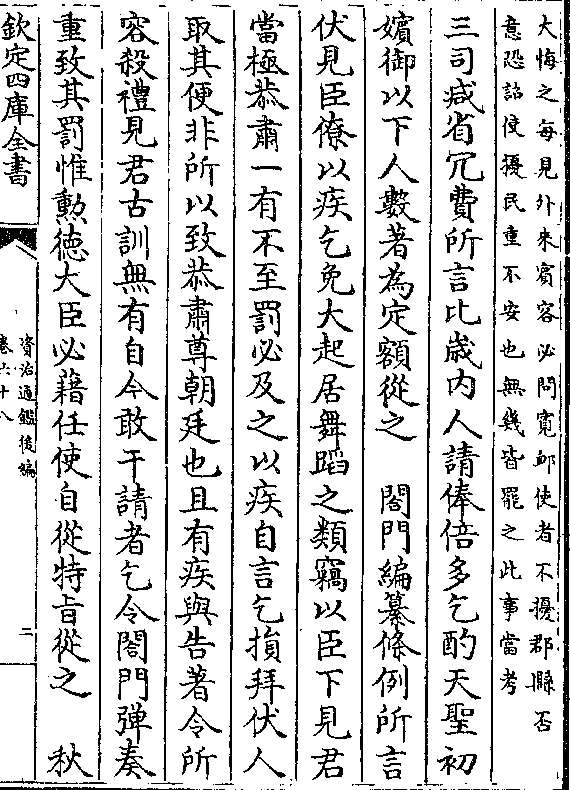 大悔之每見外來賓客必問寛䘏使者不擾郡縣否
意恐詔使擾民重不安也無幾皆罷之此事當考
三司减省冗費所言比歳内人請俸倍多乞酌天聖初
嬪御以下人數著為定額從之　閤門編纂條例所言
伏見臣僚以疾乞免大起居舞蹈之類竊以臣下見君
當極恭肅一有不至罰必及之以疾自言乞損拜伏人
取其便非所以致恭肅尊朝廷也且有疾與告著令所
容殺禮見君古訓無有自今敢干請者乞令閤門弾奏
重致其罰惟勲徳大臣必藉任使自從特㫖從之　秋
欽定四庫全書
資治通鑑後編
卷六十八
二